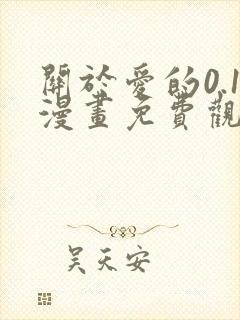 關於愛的0.1
漫畫免費觀
吴天安